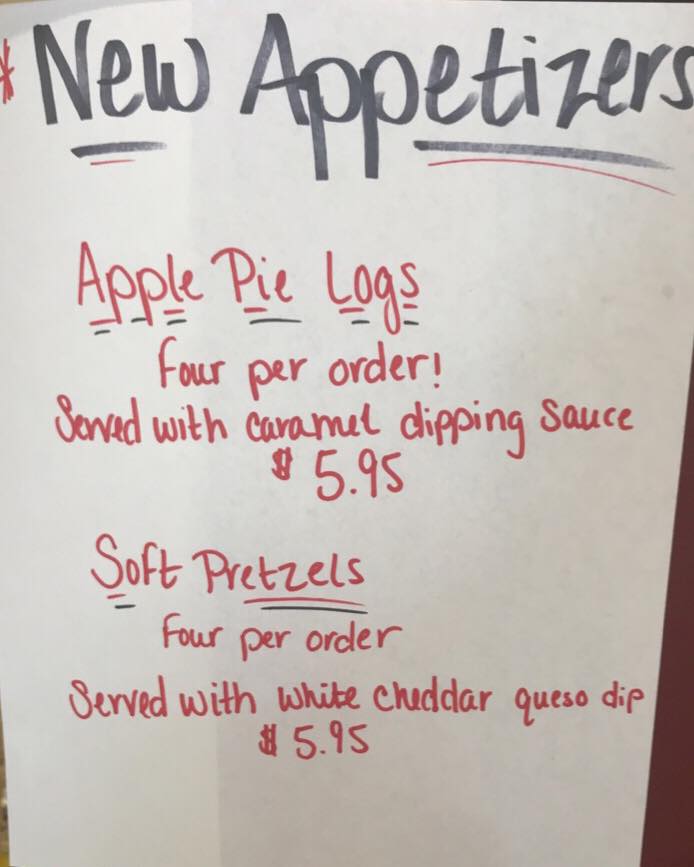 * New Appetizers
Apple Pie Logs
Four per order!
Served with caramel dipping sauce
$ 5.95
Soft Pretzels
Four per order
Served with white cheddar queso dip
$ 5.95